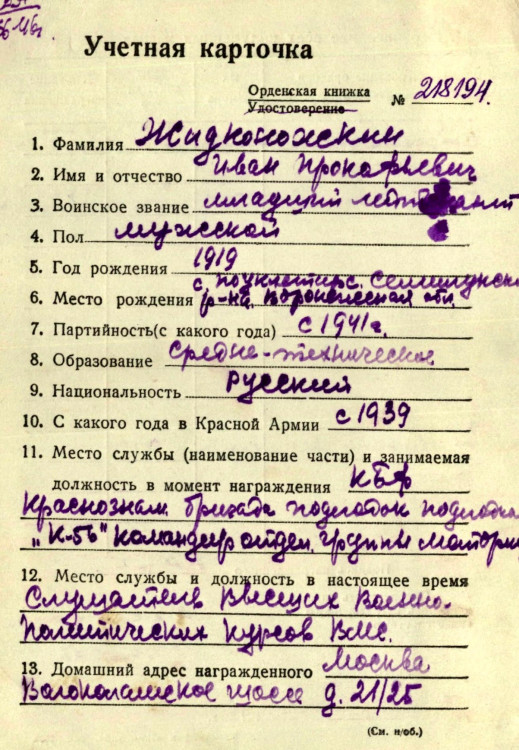 Учетная карточка
Орденская книжка
Удостоверение № 218194.
1. Фамилия Жидконожкин
2. Имя и отчество Иван Прокофьевич
3. Воинское звание младший
4. Пол мужской
5. Год рождения 1919
с.
6. Место рождения р-на, Воронежская обл.
7. Партийность(с какого года) с 1941г.
8. Образование средне-техническое
9. Национальность Русский
10. С какого года в Красной Армии с 1939
11. Место службы (наименование части) и занимаемая
должность в момент награждения КБФ
Краснознам. бригада подлодок
„К-56" командир отдел. группы
12. Место службы и должность в настоящее время
Слушатель Высших Военно-
политических курсов ВМС.
13. Домашний адрес награжденного Москва
Волоколамское шоссе д. 21/25
(См. н/об.)